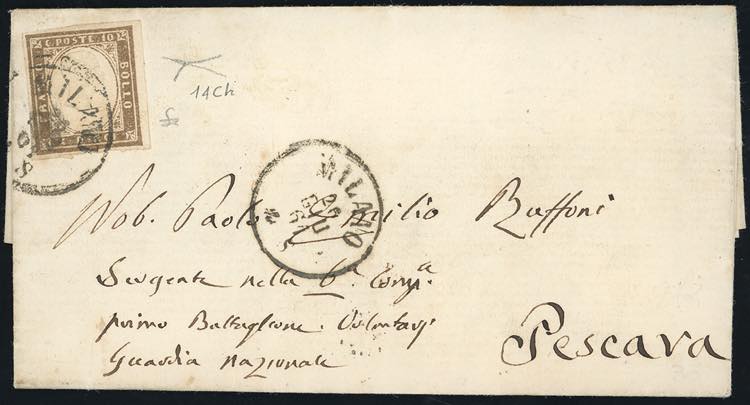 C. POSTE 10
BOLLO
MILANO
14Ch
MILANO
Nob. Paolo Emilio Buffoni
Sergente nella 6ª Compª
primo Battaglione Volontarj
Guardia Nazionale
Pescara